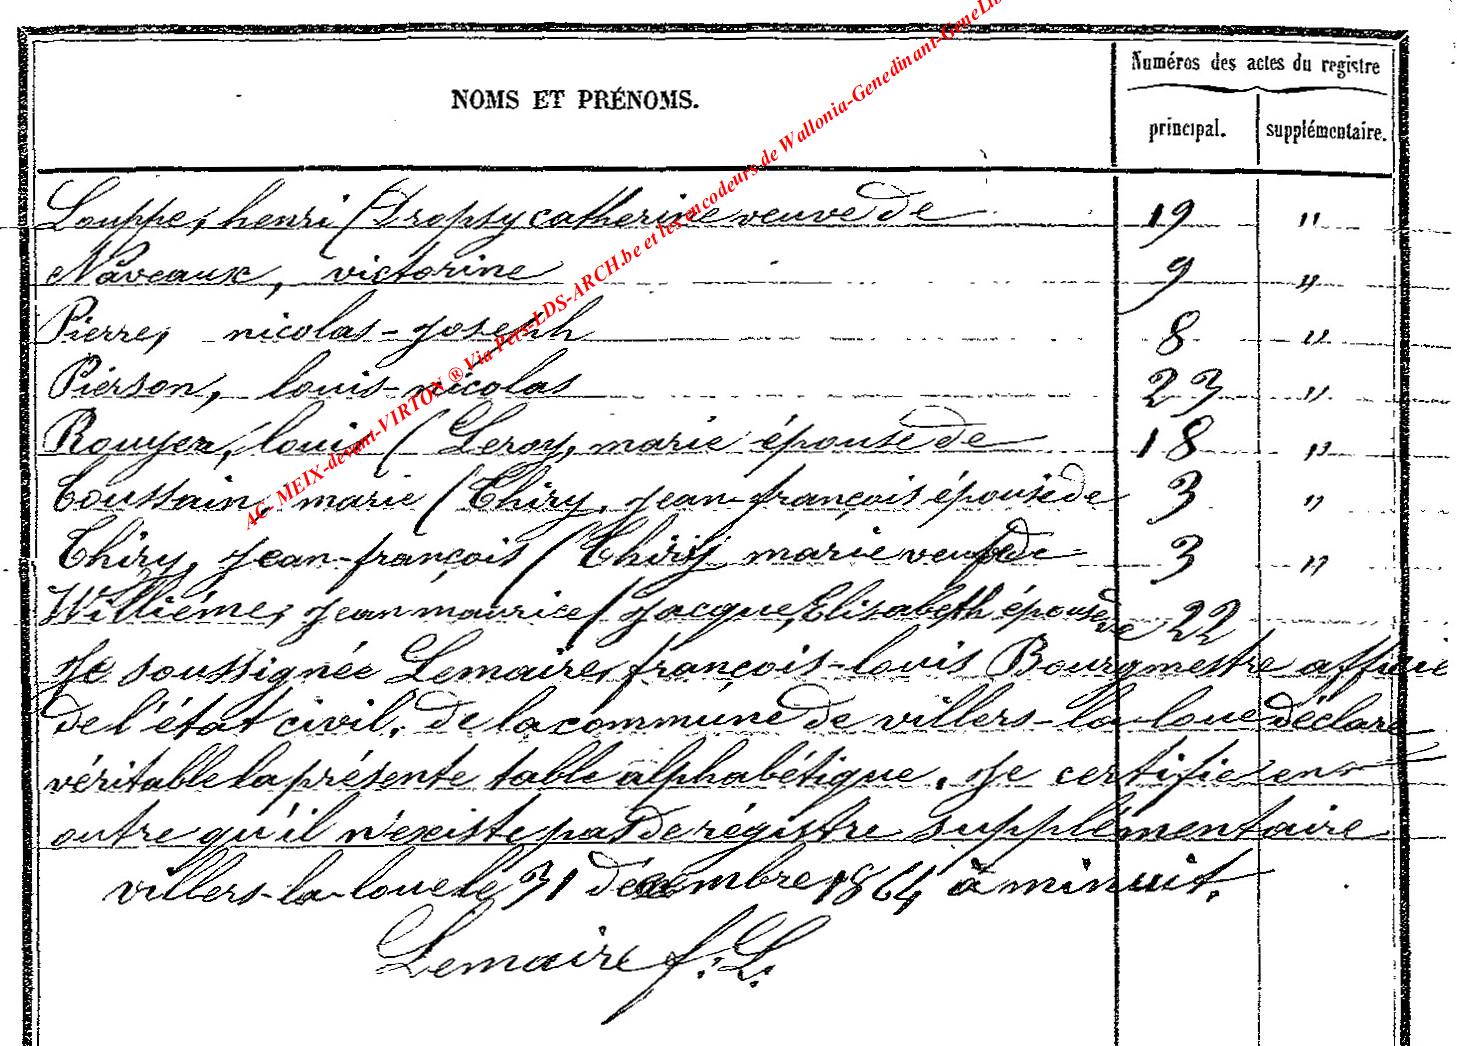 Numéros des actes du registre
NOMS ET PRÉNOMS.
principal. supplémentaire.
Louppe, henri (Dropsy catherine veuve de 19 "
Naveaux, victorine 9 "
Pierre, nicolas-joseph 8 "
Pierson, louis-nicolas 23 "
Rouyer, louis (Leroy, marie épouse de 18 "
Toussain, marie (Thiry, jean-françois épouse de 3 "
Thiry, jean-françois (Thiry marie veuve de 3 "
Williéme, jean maurice (Jacque, Elisabeth épouse de 22
Je soussignée Lemaire, françois-louis Bourgmestre officie
de l'état civil, de la commune de villers-la-loue déclare
véritable la présente table alphabétique. Je certifie en
outre qu'il n'existe pas de régistre supplémentaire
villers-la-loue le 31 décembre 1864 à minuit.
Lemaire f. L.
AC- MEIX-devant-VIRTON ® Via Pers-LDS-ARCH.be et les encodeurs de Wallonia-Genedinant-GeneLi